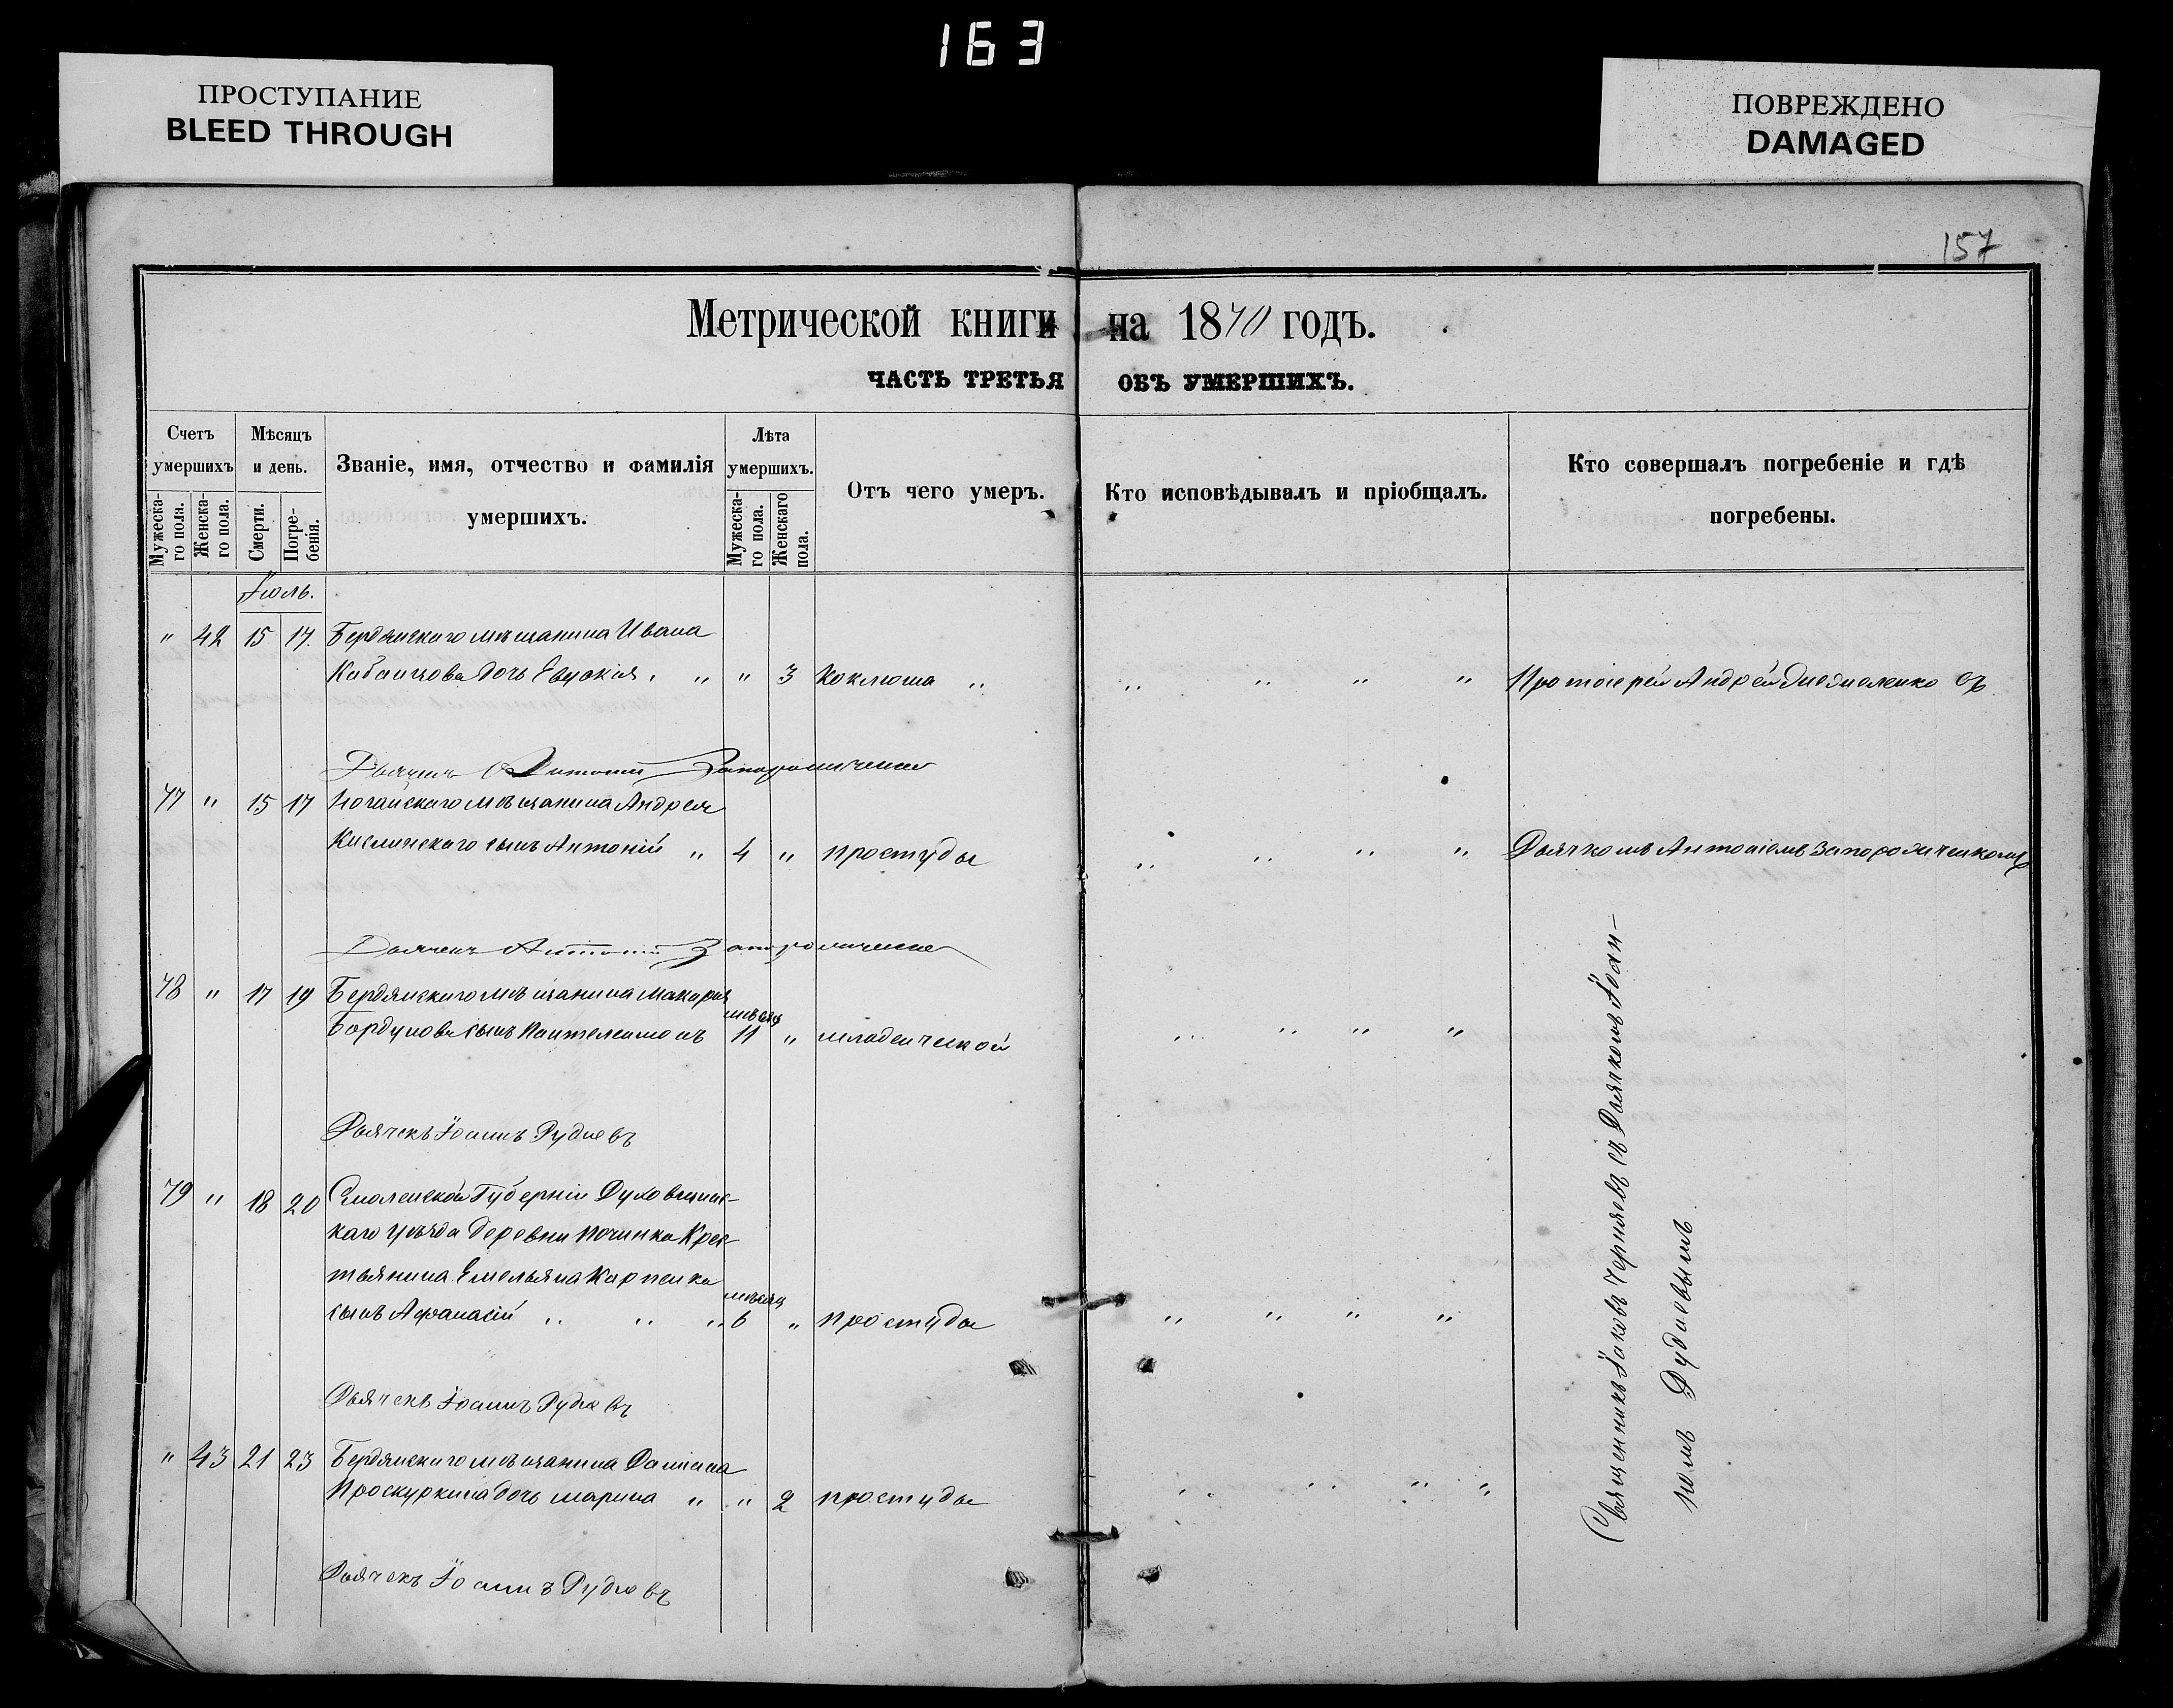 163
ПРОСТУПАНИЕ
BLEED THROUGH
ПОВРЕЖДЕНО
DAMAGED
157
Метрической книги на 1870 годъ.
ЧАСТЬ ТРЕТЬЯ ОБЪ УМЕРШИХЪ.
Счетъ умершихъ
Мужеска-го пола.
Женска-го пола.
Мѣсяцъ и день.
Смерти.
Погре-бенія.
Званіе, имя, отчество и фамилія умершихъ.
Лѣта умершихъ.
Мужеска-го пола.
Женскаго пола.
Отъ чего умеръ.
Кто исповѣдывалъ и пріобщалъ.
Кто совершалъ погребеніе и гдѣ погребены.
Іюль.
" 42 15 17. Бердянскаго мѣщанина Ивана
дочь " " 3 коклюша " " " " " Протоіерей Андрей съ
Дьячекъ Антоній
77 " 15 17 Ногайскаго мѣщанина Андрея
Кислинскаго сынъ Антоній " 4 " простуды " " " " Дьячкомъ Антоніемъ
Дьячекъ Антоній
78 " 17 19 Бердянскаго мѣщанина Макарія
сынъ Пантелеимонъ мѣсяц 11 " младенческой " " " "
Дьячекъ Іоаннъ Рудневъ
79 " 18 20 Смоленской Губерніи Духовщинс-
каго уѣзда деревни Починка Крес-
тьянина Емельяна Карпенка
сынъ Афанасій " " " мѣсяц 6 " простуды " " " "
Дьячекъ Іоаннъ Рудневъ
" 43 21 23 Бердянскаго мѣщанина
Проскуркина дочь Марина " " 2 простуды " " " "
Дьячекъ Іоаннъ Рудневъ
Священникъ Іаковъ Черняевъ съ Дьячкомъ Іоан-
номъ Рудневымъ